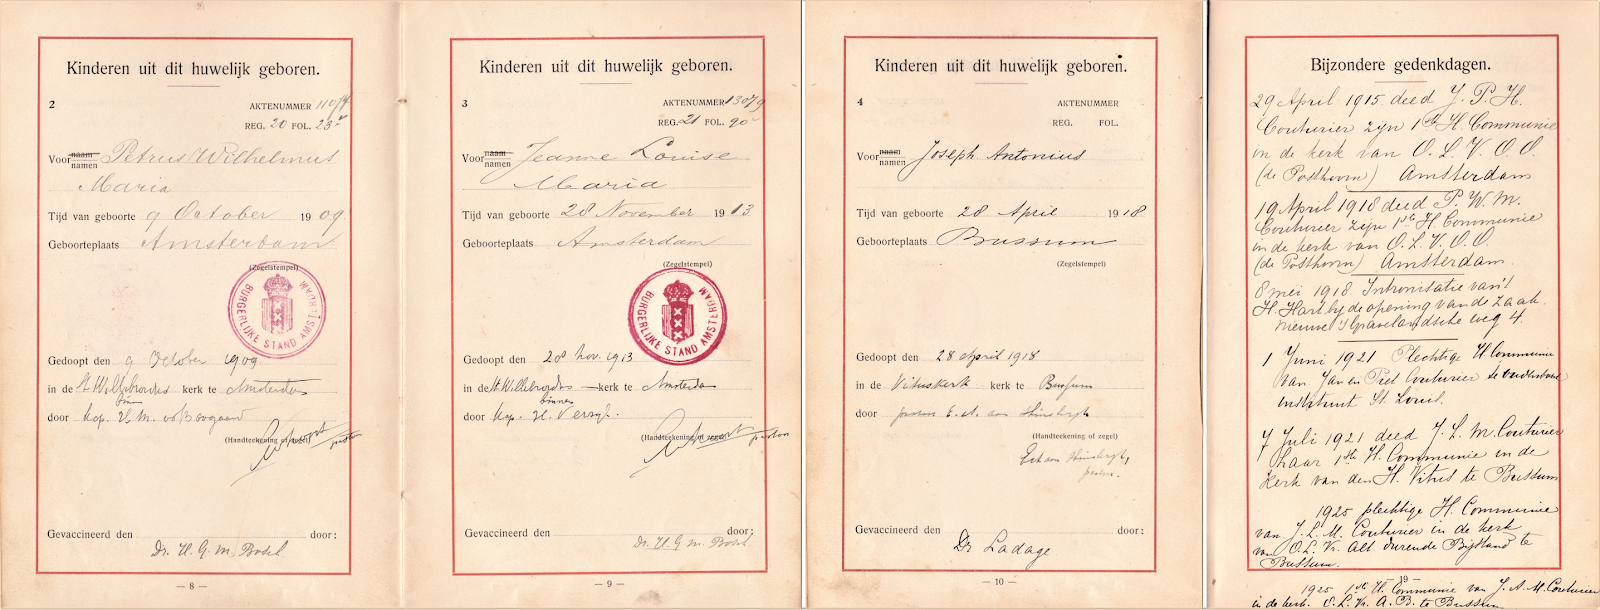 Kinderen uit dit huwelijk geboren.
2
AKTENUMMER 11074
REG. 20 FOL. 23v
Voornaam
namen Petrus Wilhelmus
Maria
Tijd van geboorte 9 October 1909
Geboorteplaats Amsterdam
(Zegelstempel)
BURGERLIJKE STAND AMSTERDAM
Gedoopt den 9 October 1909
in de St Willebrordus kerk te Amsterdam
binnen
door kap. H. M. v d Boogaard
(Handteekening of zegel)
pastoor
Gevaccineerd den door:
Dr. H. G. M. Bosch
— 8 —
Kinderen uit dit huwelijk geboren.
3
AKTENUMMER 13079
REG. 21 FOL. 90v
Voornaam
namen Jeanne Louise
Maria
Tijd van geboorte 28 November 1913
Geboorteplaats Amsterdam
(Zegelstempel)
BURGERLIJKE STAND AMSTERDAM
Gedoopt den 28 Nov. 1913
in de St. Willebrordus kerk te Amsterdam
binnen
door kap. H.
(Handteekening of zegel)
pastoor
Gevaccineerd den door:
Dr. H. G. M. Bosch
— 9 —
Kinderen uit dit huwelijk geboren.
4
AKTENUMMER
REG. FOL.
Voornaam
namen Joseph Antonius
Tijd van geboorte 28 April 1918
Geboorteplaats Bussum
(Zegelstempel)
Gedoopt den 28 April 1918
in de Vituskerk kerk te Bussum
door pastoor
(Handteekening of zegel)
pastoor.
Gevaccineerd den door:
Dr Ladage
— 10 —
Bijzondere gedenkdagen.
29 April 1915 deed J. P. H.
Couturier zijn 1ste H. Communie
in de kerk van O. L. V. O. O.
(de Posthoorn) Amsterdam
19 April 1918 deed P. W. M.
Couturier zijn 1ste H. Communie
in de kerk van O. L. V. O. O.
(de Posthoorn) Amsterdam.
8 mei 1918. Intronisatie van 't
H. Hart bij de opening van de zaak.
nieuwe 's Gravelandsche weg 4.
1 Juni 1921 Plechtige H Communie
van Jan en Piet Couturier
instituut St. Louis.
7 Juli 1921 deed J. L. M. Couturier
haar 1ste H. Communie in de
kerk van den H. Vitus te Bussum
1925 plechtige H. Communie
van J. L. M. Couturier in de kerk
van O. L. Vr. Alt durende Bijstand te
Bussum.
— 19 —
1925 1ste H. Communie van J. A. M. Couturier
in de kerk. O. L. Vr. A. B. te Bussum